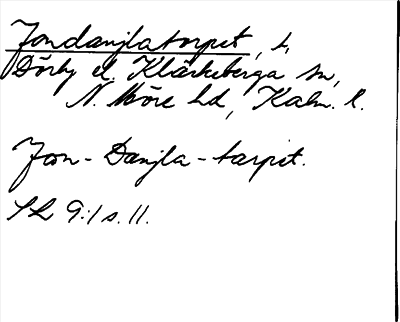 Jondanjlatorpet, t,
Dörby el. Kläckeberga sn,
N. Möre hd, Kalm. l.
Jon-Danjla-torpet.
SL 9:1 s. 11.